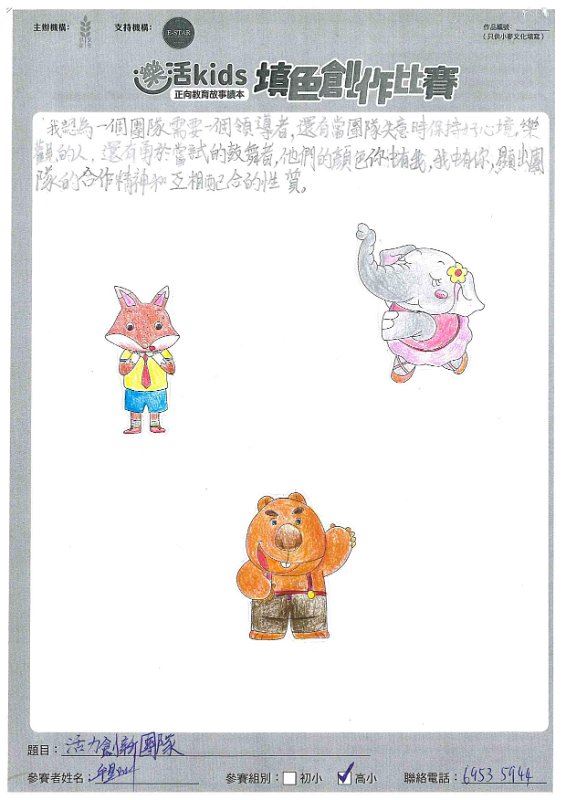 主辦機構：
支持機構：
E-STAR
作品編號
（只供小麥文化填寫）
樂活kids
正向教育故事讀本
填色創作比賽
我認為一個團隊需要一個領導者，還有當團隊失意時保持好心境，樂
觀的人，還有勇於嘗試的鼓舞者，他們的顏色你中有我，我中有你，顯出團
隊的合作精神和互相配合的性質。
題目：活力創新團隊
參賽者姓名：
參賽組別： 初小 ✓ 高小
聯絡電話：6953 5944